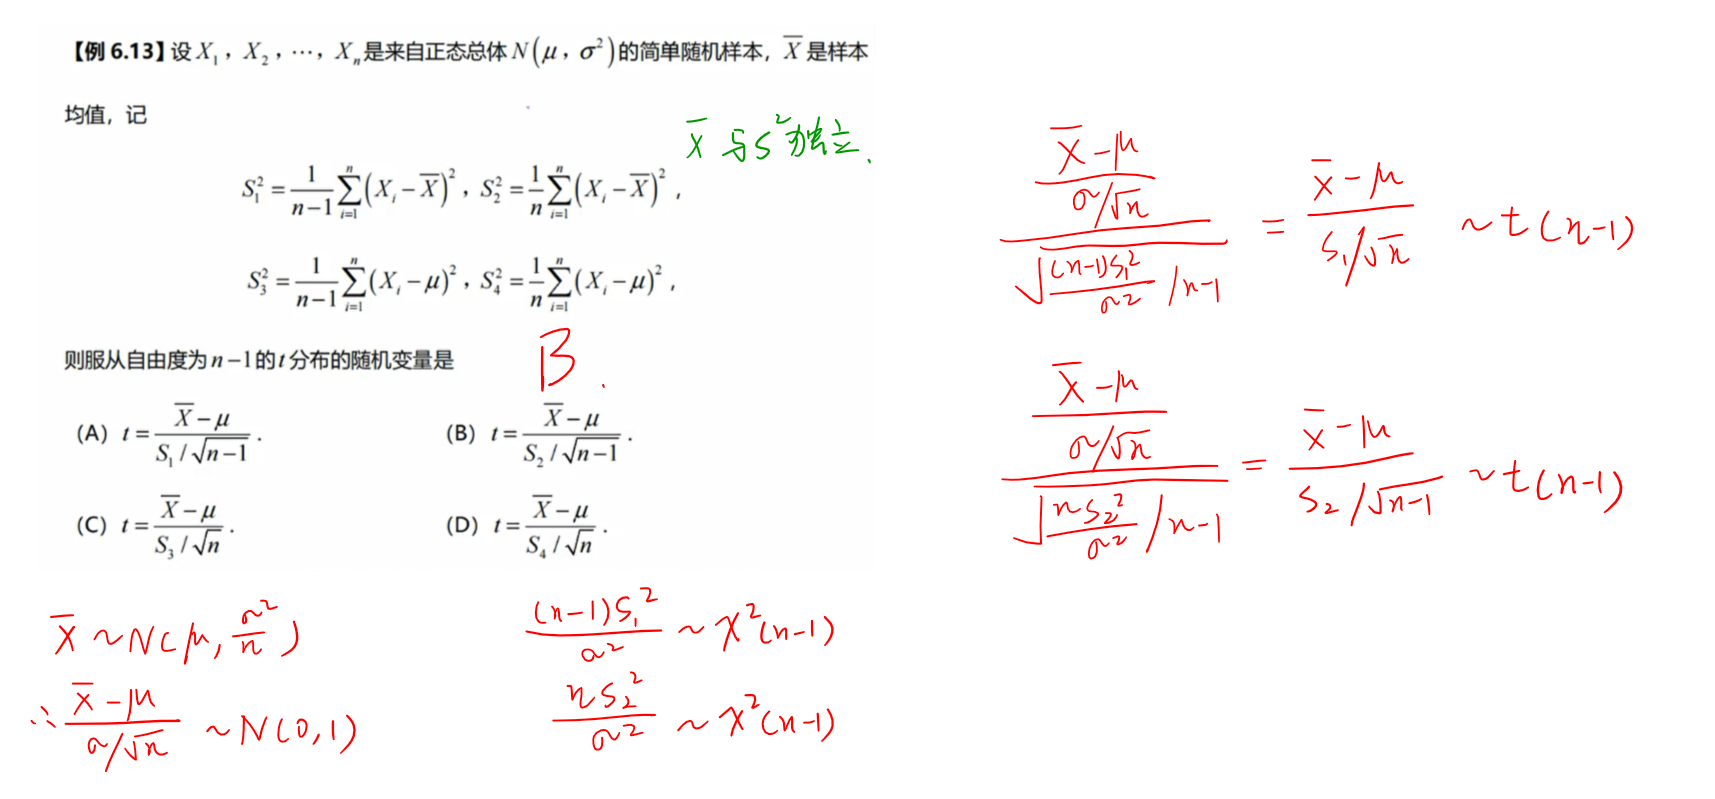 【例 6.13】设 X₁，X₂，⋯，Xₙ是来自正态总体 N(μ，σ²)的简单随机样本，X̄ 是样本
均值，记
X̄ 与S²独立.
S₁² = 1/(n−1) ∑ᵢ₌₁ⁿ (Xᵢ − X̄)²，S₂² = 1/n ∑ᵢ₌₁ⁿ (Xᵢ − X̄)²，
S₃² = 1/(n−1) ∑ᵢ₌₁ⁿ (Xᵢ − μ)²，S₄² = 1/n ∑ᵢ₌₁ⁿ (Xᵢ − μ)²，
则服从自由度为 n−1 的 t 分布的随机变量是
B.
(A) t = (X̄ − μ)/(S₁ / √(n−1)) .
(B) t = (X̄ − μ)/(S₂ / √(n−1)) .
(C) t = (X̄ − μ)/(S₃ / √n) .
(D) t = (X̄ − μ)/(S₄ / √n) .
X̄ ~ N(μ, σ²/n)
∴ (X̄ − μ)/(σ/√n) ~ N(0,1)
(n−1)S₁²/σ² ~ χ²(n−1)
nS₂²/σ² ~ χ²(n−1)
((X̄ − μ)/(σ/√n)) / √((n−1)S₁²/σ² / n−1) = (X̄ − μ)/(S₁/√n) ~ t(n−1)
((X̄ − μ)/(σ/√n)) / √(nS₂²/σ² / n−1) = (X̄ − μ)/(S₂/√(n−1)) ~ t(n−1)